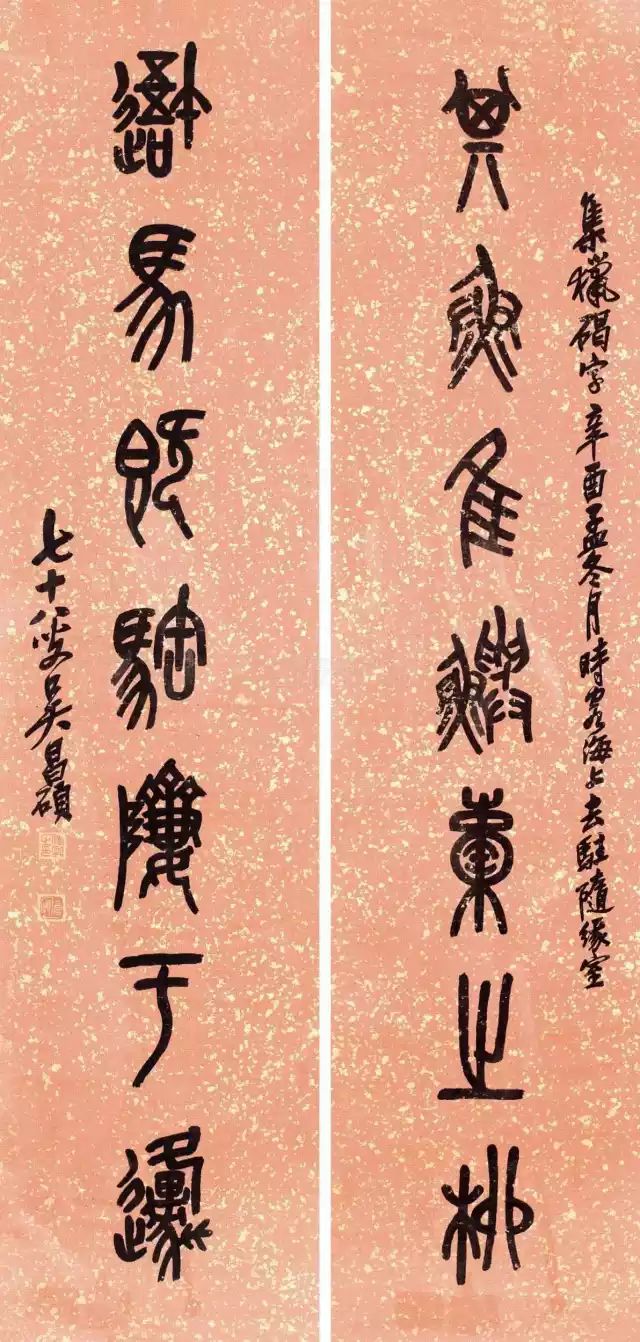 集獵碣字辛酉孟冬月時客海上去駐隨緣室
其魚隹鱮橐之柳
馬既于邍
七十八叟吳昌碩